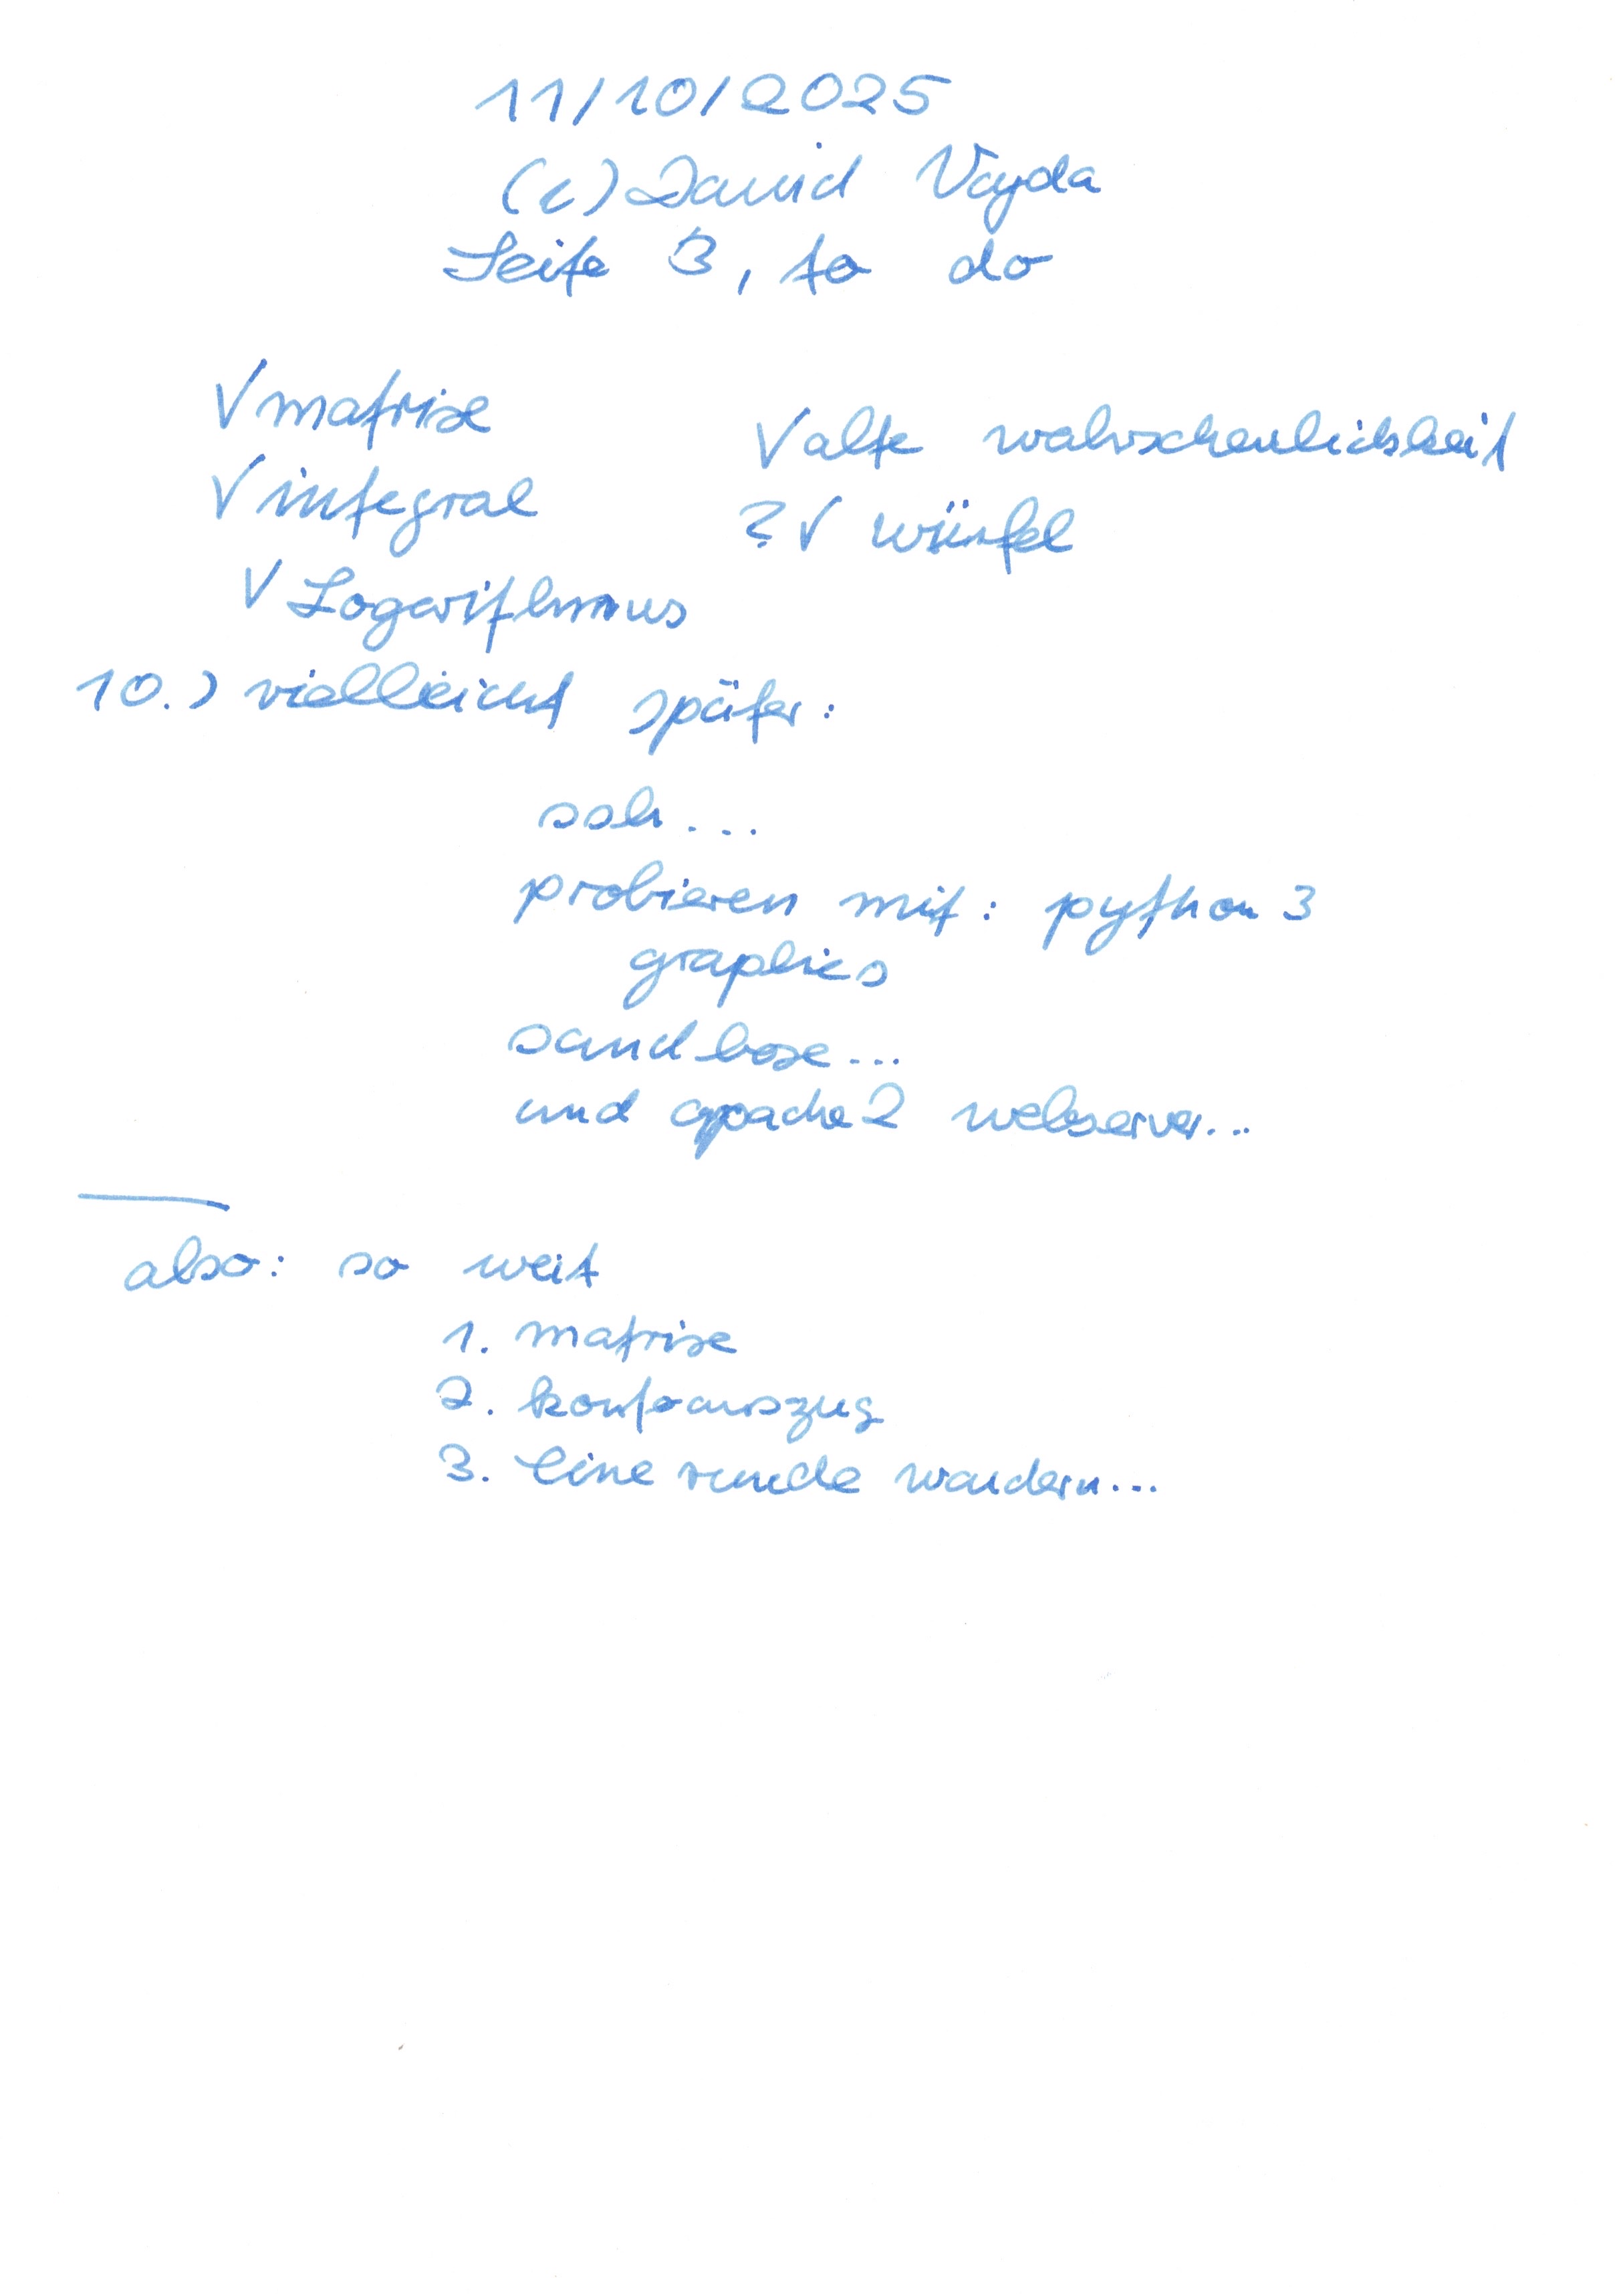 11/10/2025
(c) David Vajda
Seite 3, to do
√ matrix
√ alte wahrscheulichkeit
√ integral
? √ würfel
√ Logarithmus
10.) vielleicht später:
ssh...
probieren mit: python3
graphics
sandbox...
und apache2 webserver...
also: so weit
1. matrix
2. kontoauszug
3. Eine runde wandern...